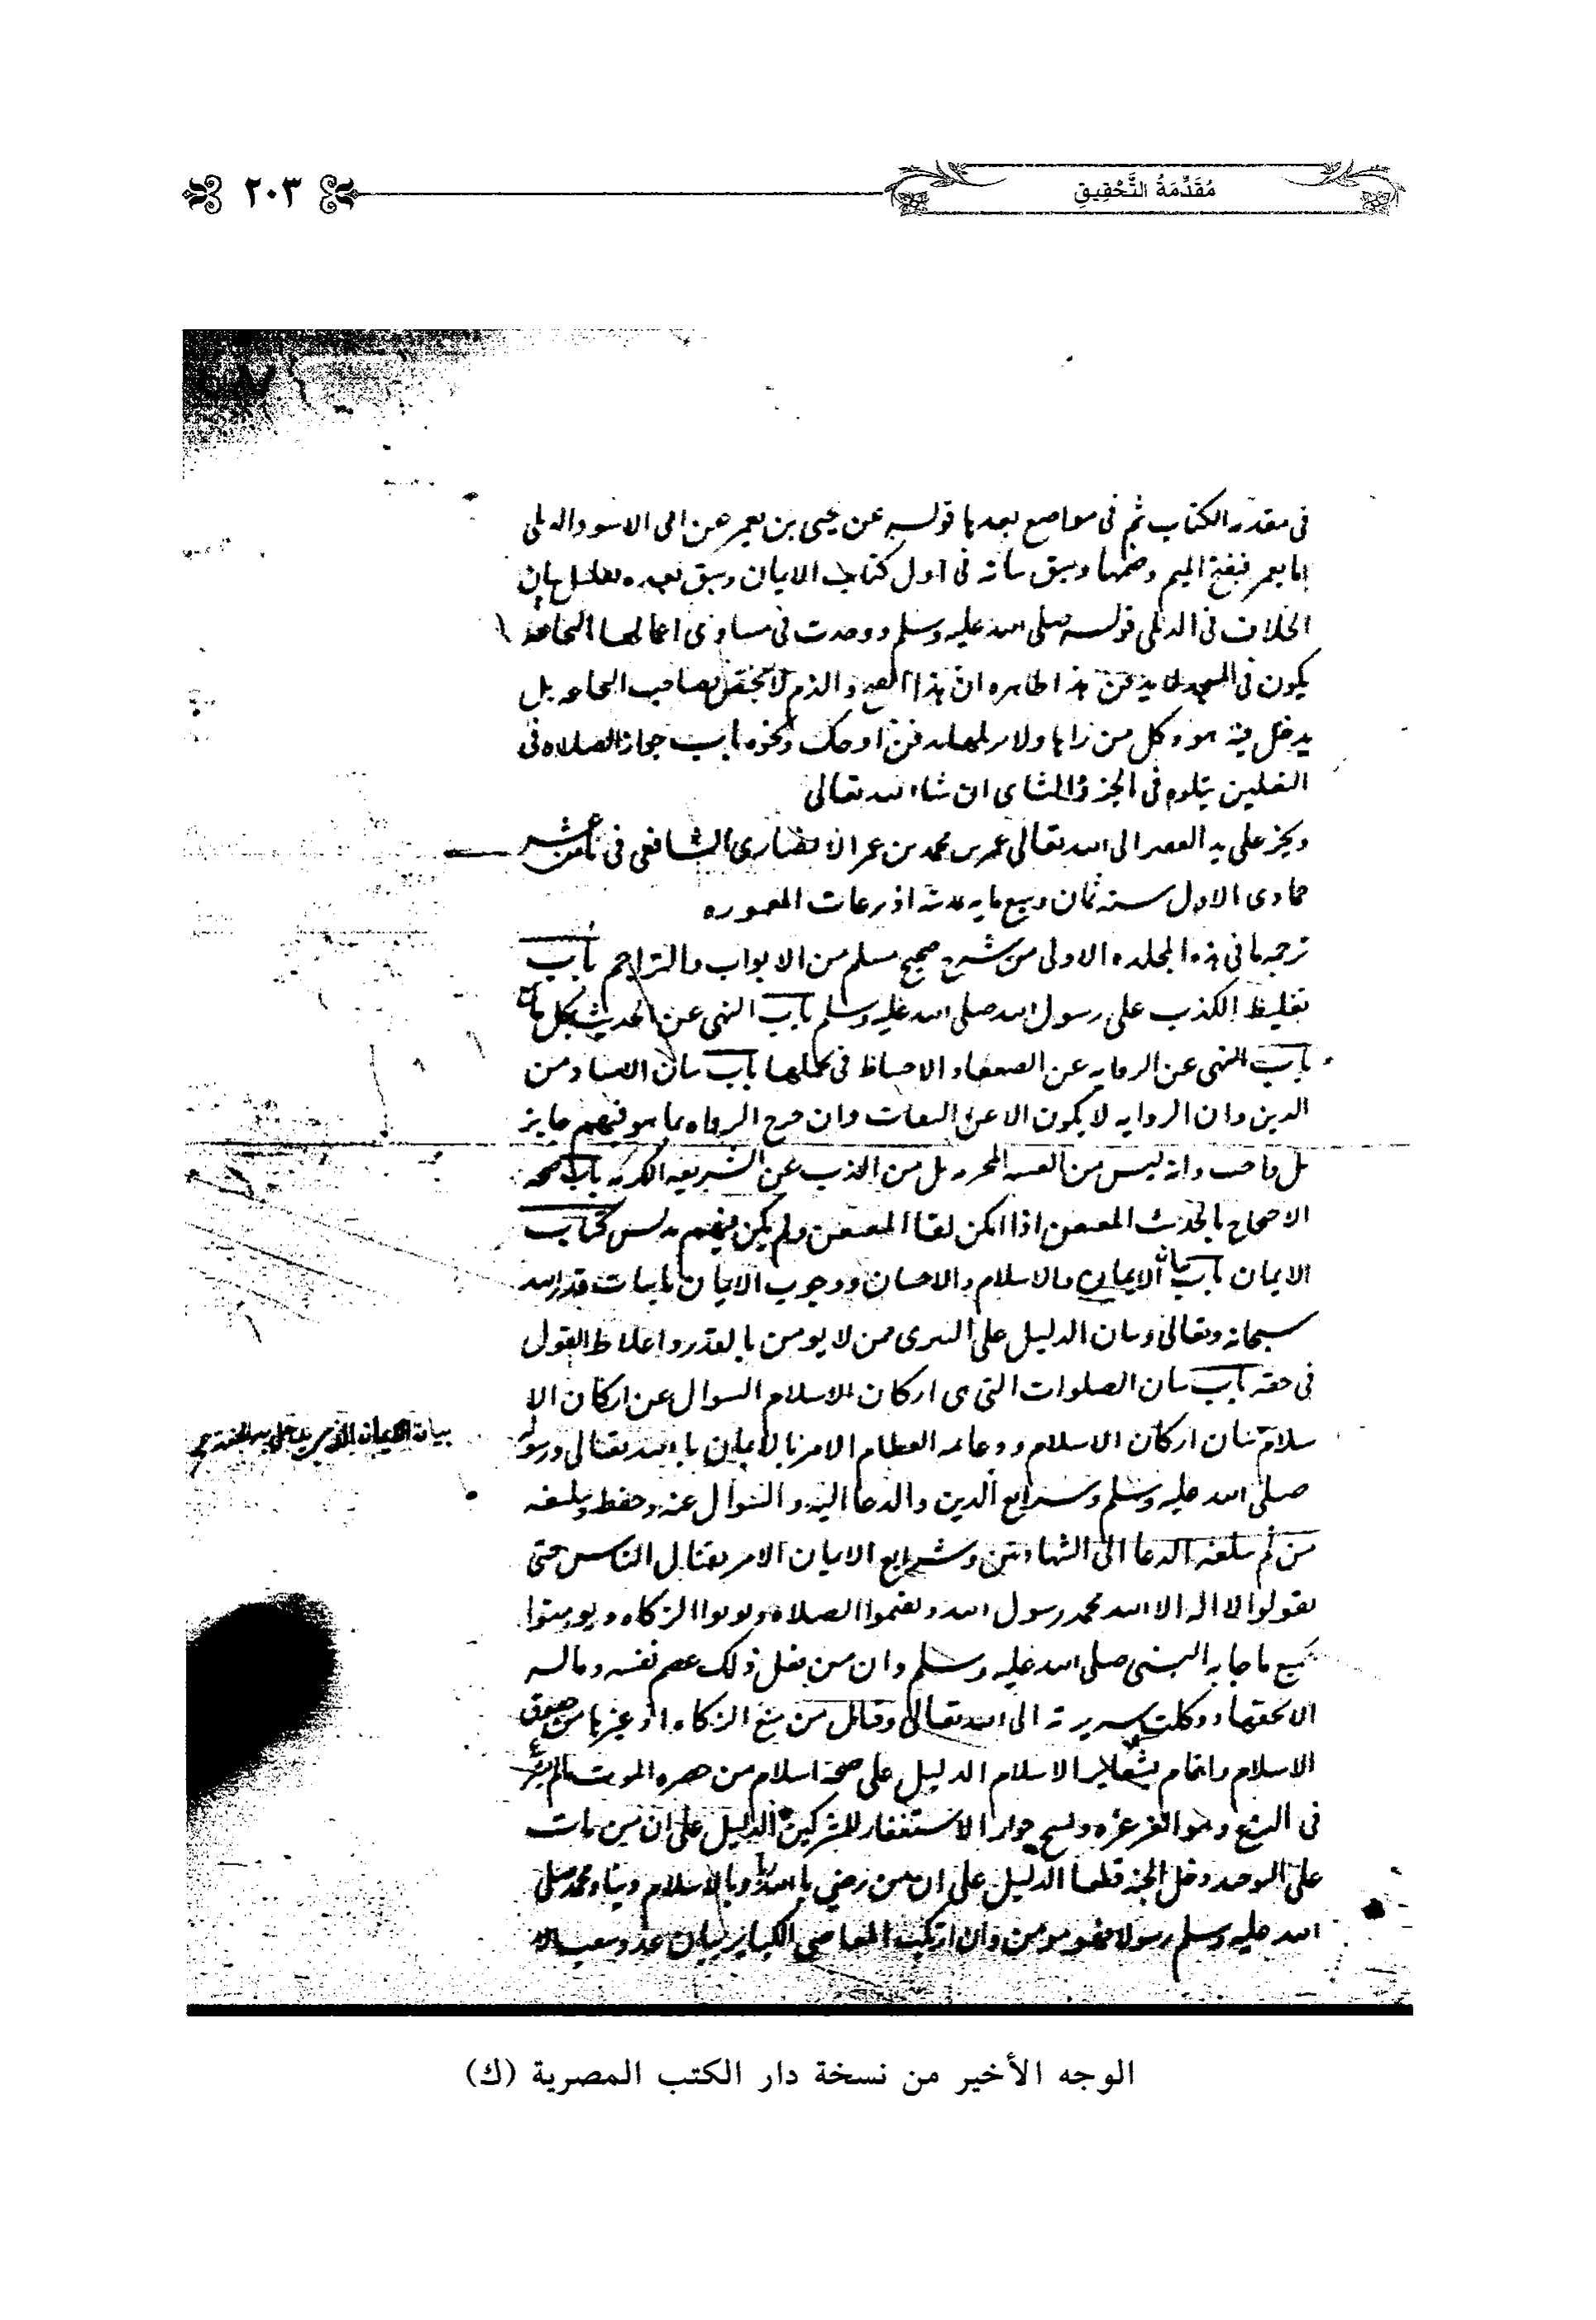 مُقَدِّمَةُ التَّحْقِيقِ
٢٠٣
في مقدمه الكتاب ثم في مواضع بعدها قوله عن يحيى بن يعمر عن ابي الاسود الدىلى
اما يعمر فبفتح الميم وضمها وسبق بيانه في اول كتاب الايمان وسبق بعده بقليل بيان
الخلاف في الدىلى قوله صلى الله عليه وسلم ووجدت في مساوى اعمالها النخاعة
يكون في المسجد لا يدفن هذا ظاهره ان هذا القبح والذم لا يختص بصاحب النخاعه بل
يدخل فيه هو وكل من راها ولا يزيلها بدفن او حك ونحوه باب جواز الصلاه في
النعلين يتلوه في الجزء الثاني ان شاء الله تعالى
ونجز على يد الفقير الى الله تعالى عمر بن محمد بن عمر الانصارى الشافعي في ثامن عشر
جمادى الاول سنه ثمان وسبع مايه بمدينة اذرعات المعموره
ترجمه ما في هذه المجلده الاولى من شرح صحيح مسلم من الابواب والتراجم باب
تغليظ الكذب على رسول الله صلى الله عليه وسلم باب النهى عن الحديث بكل ما
باب النهى عن الروايه عن الضعفاء والاحتياط في تحملها باب بيان الاسناد من
الدين وان الروايه لا يكون الا عن الثقات وان جرح الرواه بما هو فيهم جايز
بل واجب وانه ليس من الغيبه المحرمه بل من الذب عن الشريعه المكرمه باب صحه
الاحتجاج بالحديث المعنعن اذا امكن لقا المعنعنن ولم يكن فيهم مدلس كتاب
الايمان باب بيان الايمان والاسلام والاحسان ووجوب الايمان باثبات قدر الله
سبحانه وتعالى وبيان الدليل على التبرى ممن لا يومن بالقدر واغلاظ القول
في حقه باب بيان الصلوات التي هى اركان الاسلام السوال عن اركان الا
سلام بيان اركان الاسلام ودعايمه العظام الامر بالايمان بالله تعالى ورسوله
بيان الايمان الذي يدخل به الجنة
صلى الله عليه وسلم وشرايع الدين والدعا اليه والسوال عنه وحفظه وتبليغه
من لم تبلغه الدعا الى الشهادتين وشرايع الايمان الامر بقتال الناس حتى
يقولوا لا اله الا الله محمد رسول الله ويقيموا الصلاه ويوتوا الزكاه ويومنوا
بجميع ما جا به النبي صلى الله عليه وسلم وان من فعل ذلك عصم نفسه وماله
الا بحقها ووكلت سريرته الى الله تعالى وقتال من منع الزكاه او غيرها من حقوق
الاسلام واهتمام بشعاير الاسلام الدليل على صحة اسلام من حضره الموت ما لم يشرع
في النزع وهو الغرغره ونسخ جواز الاستغفار للمشركين الدليل على ان من مات
على التوحيد دخل الجنة قطعا الدليل على ان من رضي بالله ربا وبالاسلام دينا ومحمد صلى
الله عليه وسلم رسولا فهو مومن وان ارتكب المعاصى الكباير بيان عدد شعب الا
الوجه الأخير من نسخة دار الكتب المصرية (ك)